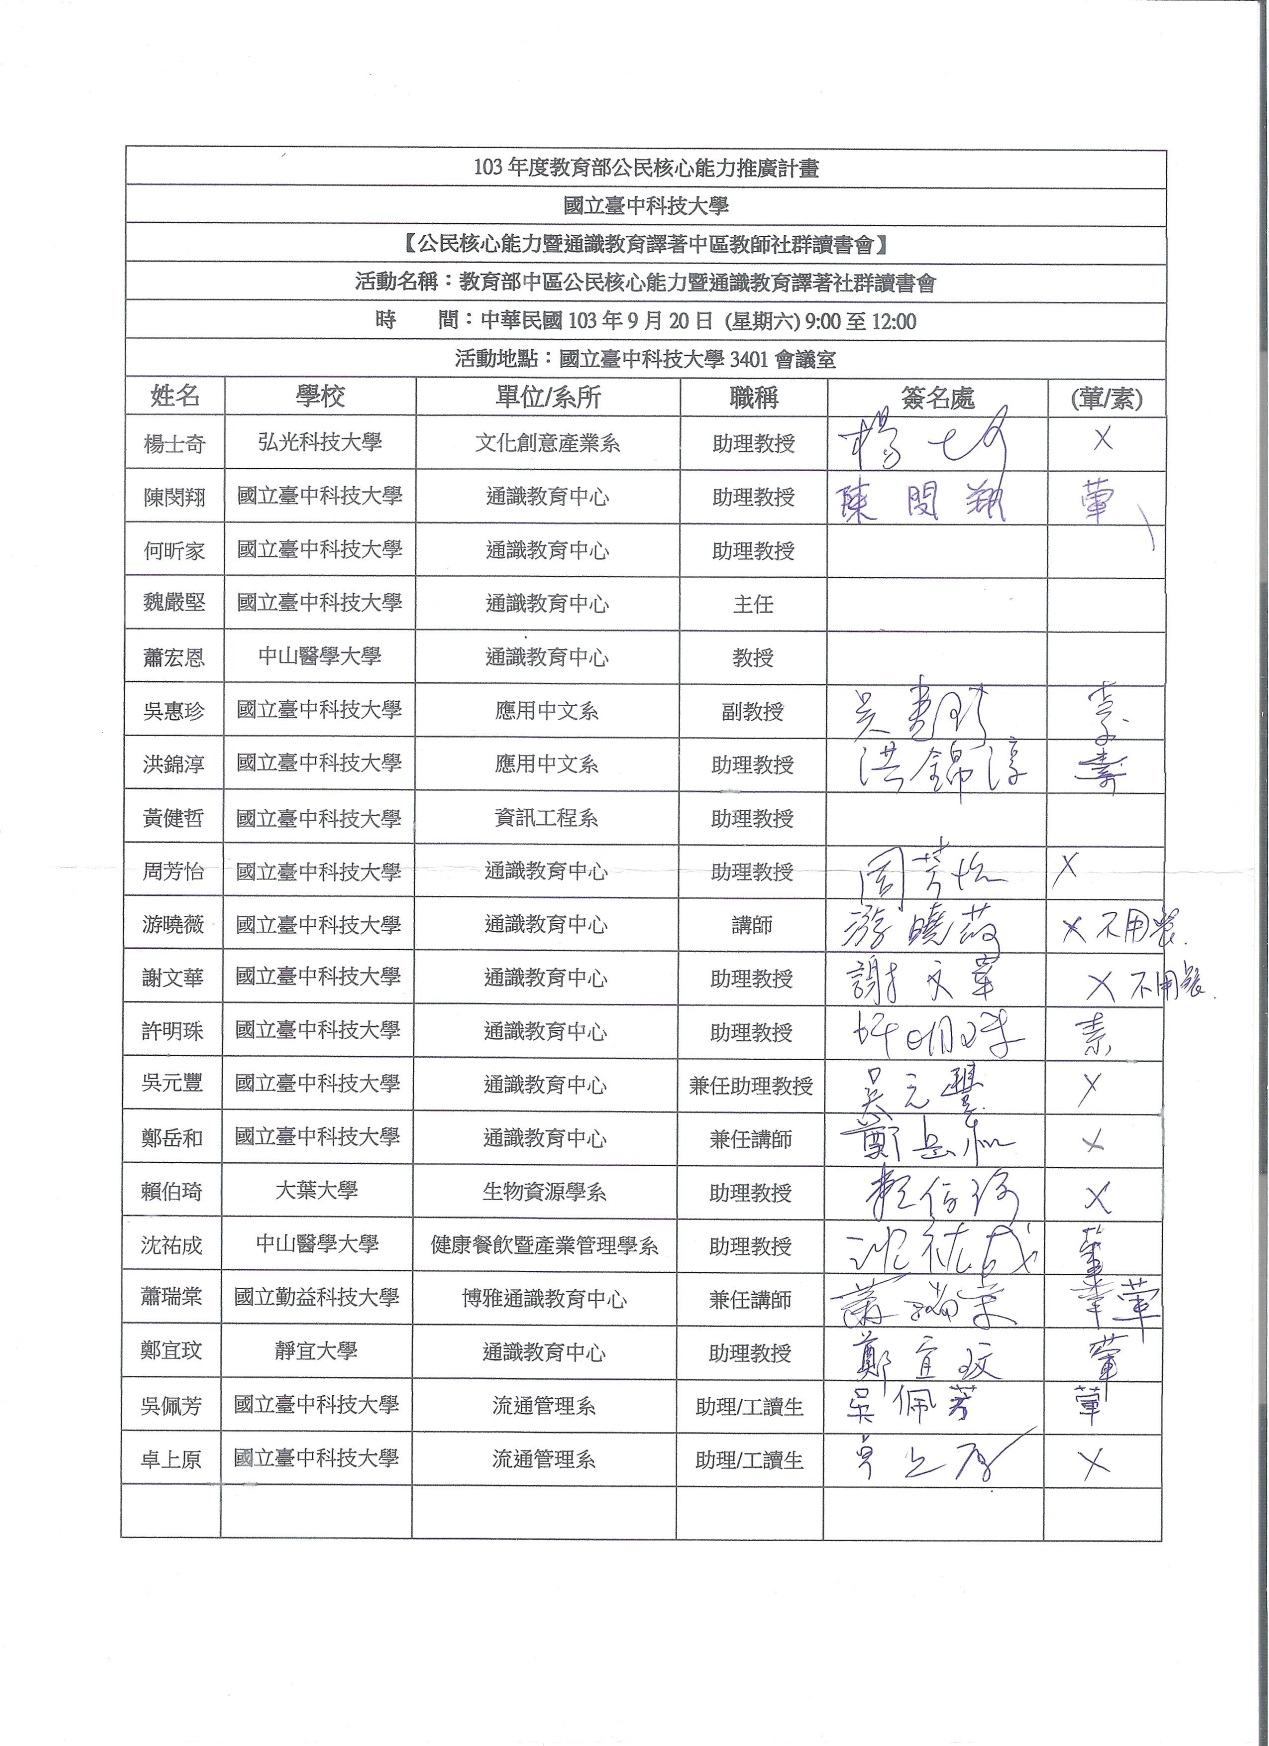 103 年度教育部公民核心能力推廣計畫
國立臺中科技大學
【公民核心能力暨通識教育譯著中區教師社群讀書會】
活動名稱：教育部中區公民核心能力暨通識教育譯著社群讀書會
時　　間：中華民國 103 年 9 月 20 日 (星期六) 9:00 至 12:00
活動地點：國立臺中科技大學 3401 會議室
姓名 學校 單位/系所 職稱 簽名處 (葷/素)
楊士奇 弘光科技大學 文化創意產業系 助理教授 楊士奇 X
陳閔翔 國立臺中科技大學 通識教育中心 助理教授 陳閔翔 葷
何昕家 國立臺中科技大學 通識教育中心 助理教授
魏嚴堅 國立臺中科技大學 通識教育中心 主任
蕭宏恩 中山醫學大學 通識教育中心 教授
吳惠珍 國立臺中科技大學 應用中文系 副教授 吳惠珍
洪錦淳 國立臺中科技大學 應用中文系 助理教授 洪錦淳 素
黃健哲 國立臺中科技大學 資訊工程系 助理教授
周芳怡 國立臺中科技大學 通識教育中心 助理教授 周芳怡 X
游曉薇 國立臺中科技大學 通識教育中心 講師 游曉薇 X 不用餐
謝文華 國立臺中科技大學 通識教育中心 助理教授 謝文華 X 不用餐
許明珠 國立臺中科技大學 通識教育中心 助理教授 許明珠 素
吳元豐 國立臺中科技大學 通識教育中心 兼任助理教授 吳元豐 X
鄭岳和 國立臺中科技大學 通識教育中心 兼任講師 鄭岳和 X
賴伯琦 大葉大學 生物資源學系 助理教授 賴伯琦 X
沈祐成 中山醫學大學 健康餐飲暨產業管理學系 助理教授 沈祐成 葷
蕭瑞棠 國立勤益科技大學 博雅通識教育中心 兼任講師 蕭瑞棠 葷
鄭宜玟 靜宜大學 通識教育中心 助理教授 鄭宜玟 葷
吳佩芳 國立臺中科技大學 流通管理系 助理/工讀生 吳佩芳 葷
卓上原 國立臺中科技大學 流通管理系 助理/工讀生 卓上原 X